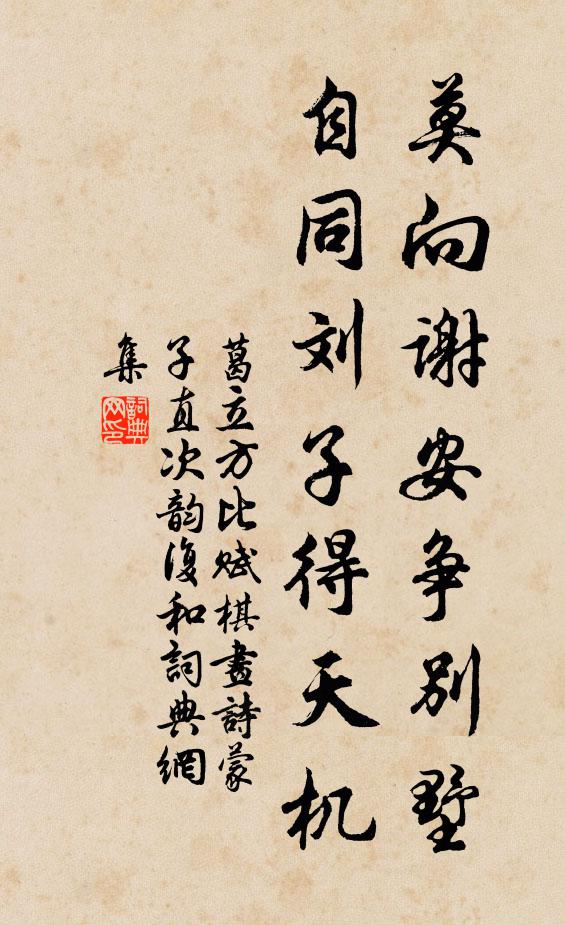 莫向谢安争别墅
自同刘子得天机
葛立方比赋棋画詩蒙
子直次韵復和詞典網
集
詞典网印